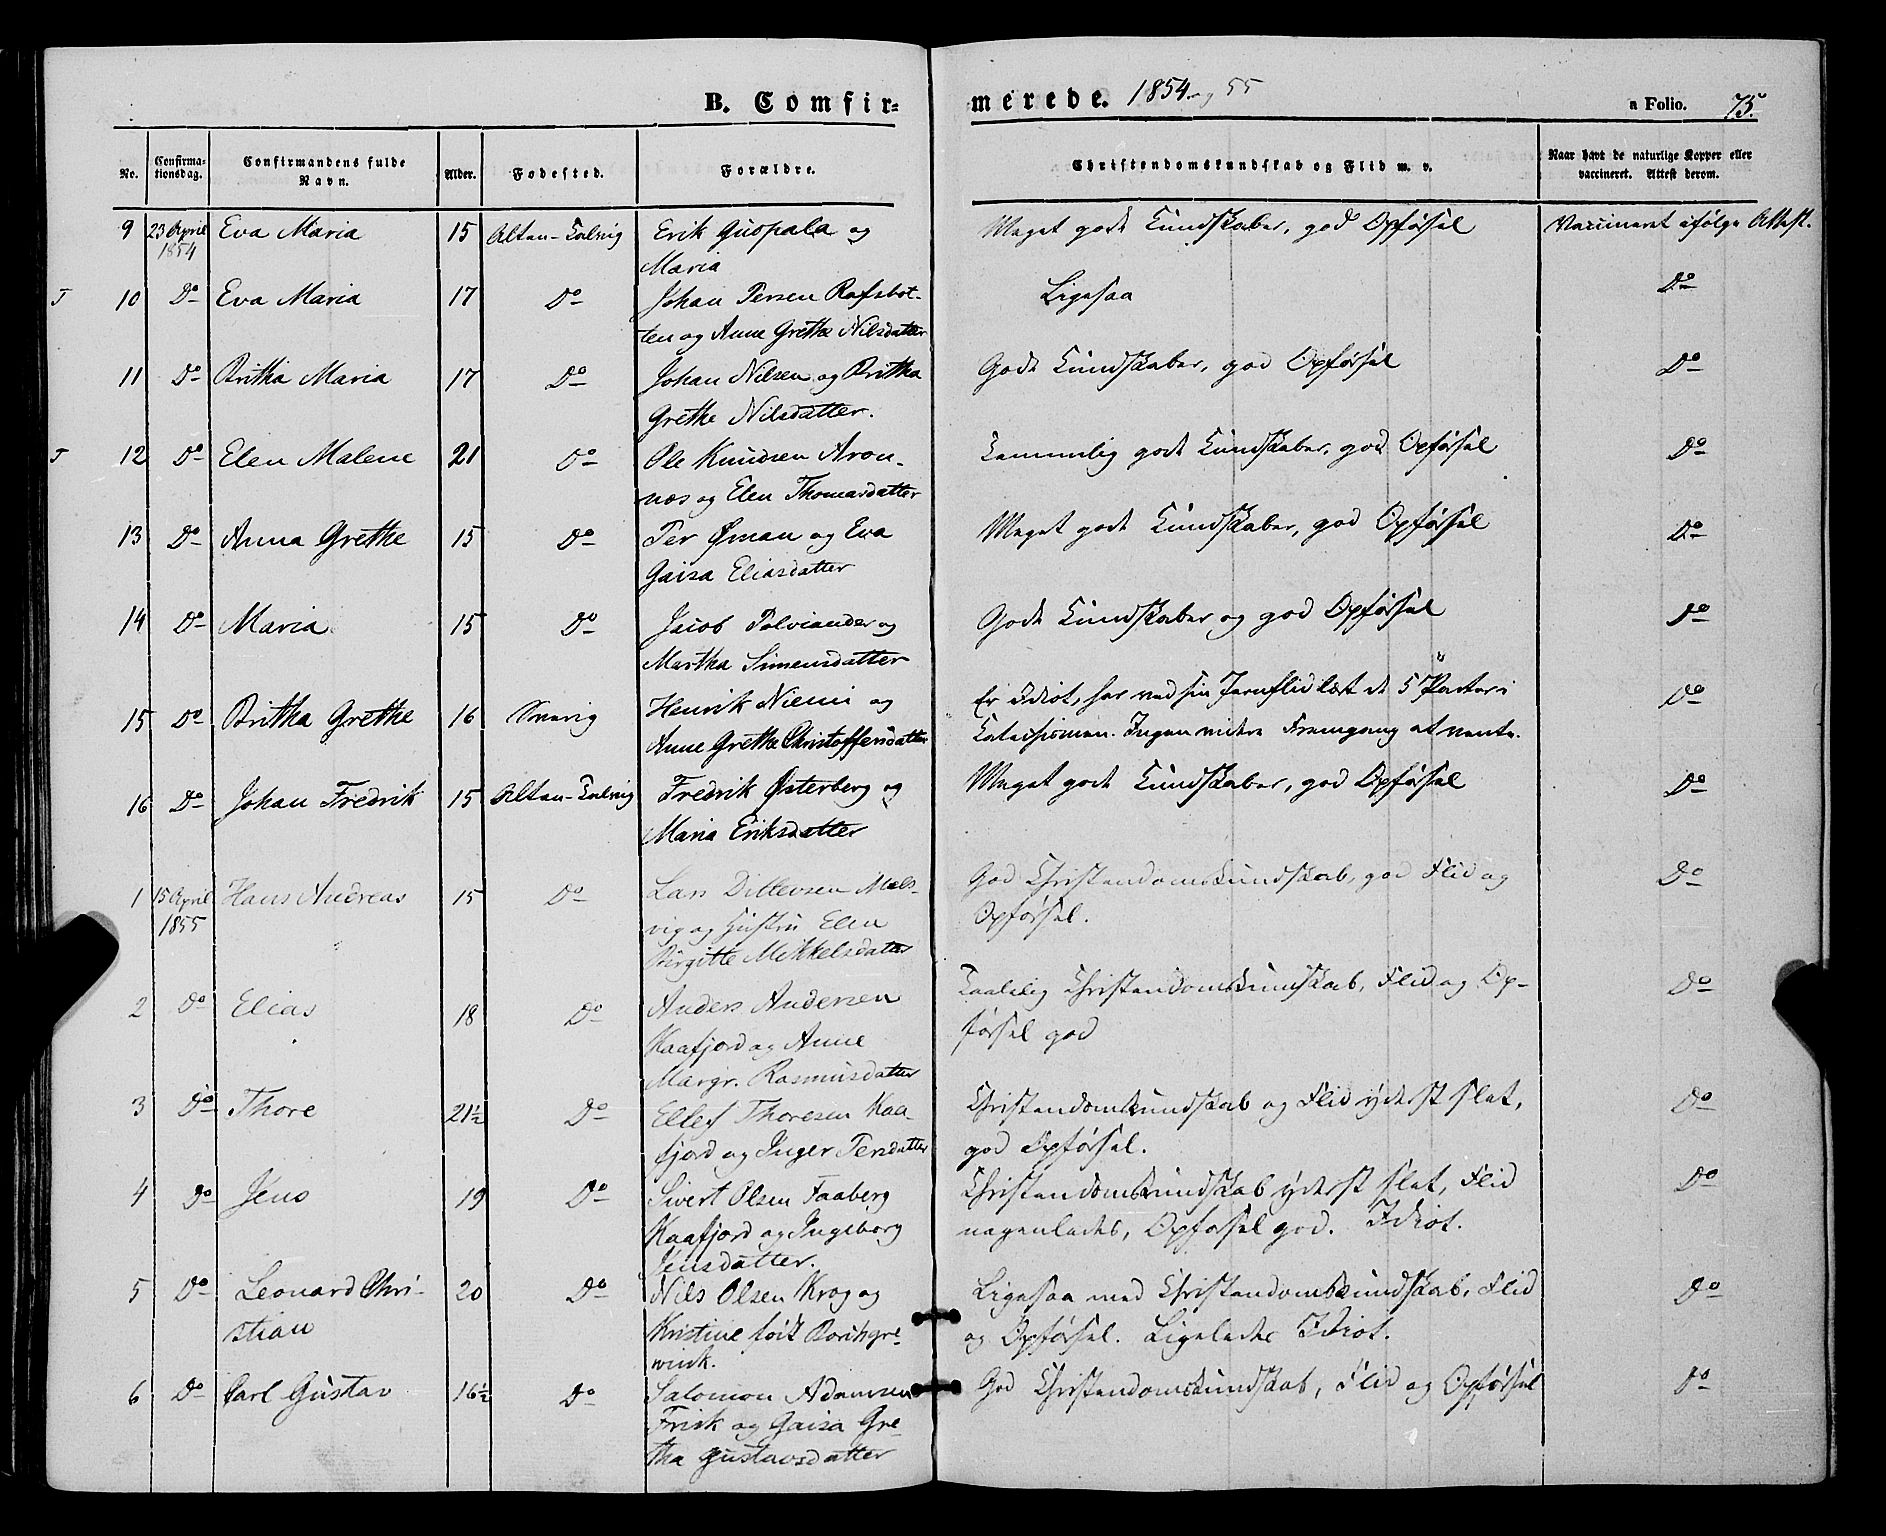 B. Comfir-
merede. 1854 og 55
a Folio. 75.
No.
Confirma-
tionsdag.
Confirmandens fulde
Navn.
Alder.
Fødested.
Forældre.
Christendomskundskab og Flid m. v.
Naar havt de naturlige Kopper eller
vaccineret. Attest derom.
9 23 April Eva Maria 15 Alten-Talvig Erik Guspala og Meget gode Kundskaber, god Opførsel Vaccineret ifølge Attest.
1854 Maria
T 10 Do Eva Maria 17 Do Johan Persen Rafsbot- Ligesaa Do
ten og Anne Grethe Nilsdatter
11 Do Britha Maria 17 Do Johan Nilsen og Britha Gode Kundskaber, god Opførsel Do
Grethe Nilsdatter.
T 12 Do Elen Malene 21 Do Ole Knudsen Aron- Temmelig gode Kundskaber, god Opførsel Do
næs og Elen Thomasdatter
13 Do Anna Grethe 15 Do Per Øman og Eva Meget gode Kundskaber, god Opførsel Do
Gaisa Eliasdatter
14 Do Maria 15 Do Jacob Polviander og Gode Kundskaber og god Opførsel Do
Martha Simensdatter
15 Do Britha Grethe 16 Sverig Henrik Niemi og Er Idiot, har ved sin Jernflid læst de 5 Parter i Do
Anne Grethe Christoffersdatter Katechismen. Ingen videre Fremgang at vente.
16 Do Johan Fredrik 15 Alten-Talvig Fredrik Østerberg og Meget gode Kundskaber, god Opførsel Do
Maria Eriksdatter
1 15 April Hans Andreas 15 Do Lars Ditlevsen Mels- God Christendomskundskab, god Flid og Do
1855 vig og Hustru Elen Opførsel.
Birgitte Mikkelsdatter
2 Do Elias 18 Do Anders Andersen Taalelig Christendomskundskab, Flid og Op- Do
Kaafjord og Anne førsel god
Margr. Rasmusdatter
3 Do Thore 21½ Do Ellef Thoresen Kaa- Christendomskundskab og Flid yderst slet, Do
fjord og Inger Persdatter god Opførsel.
4 Do Jens 19 Do Sivert Olsen Faaberg Christendomskundskab yderst slet, Flid Do
Kaafjord og Ingeborg nogenledes, Opførsel god. Idiot.
Jensdatter.
5 Do Leonard Chri- 20 Do Nils Olsen Krog og Ligesaa med Christendomskundskab, Flid Do
stian Kristine født Borchgre- og Opførsel. Ligeledes Idiot.
vink.
6 Do Carl Gustav 16½ Do Salomon Adamsen God Christendomskundskab, Flid og Opførsel Do
Frisk og Gaisa Gre-
tha Gustavsdatter